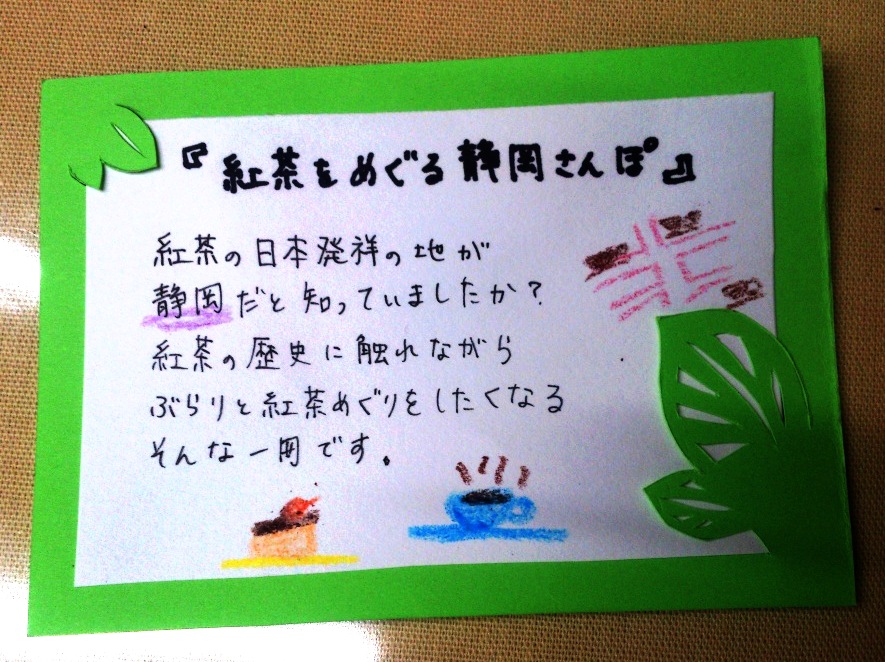 『紅茶をめぐる静岡さんぽ』
紅茶の日本発祥の地が
静岡だと知っていましたか?
紅茶の歴史に触れながら
ぶらりと紅茶めぐりをしたくなる
そんな一冊です。